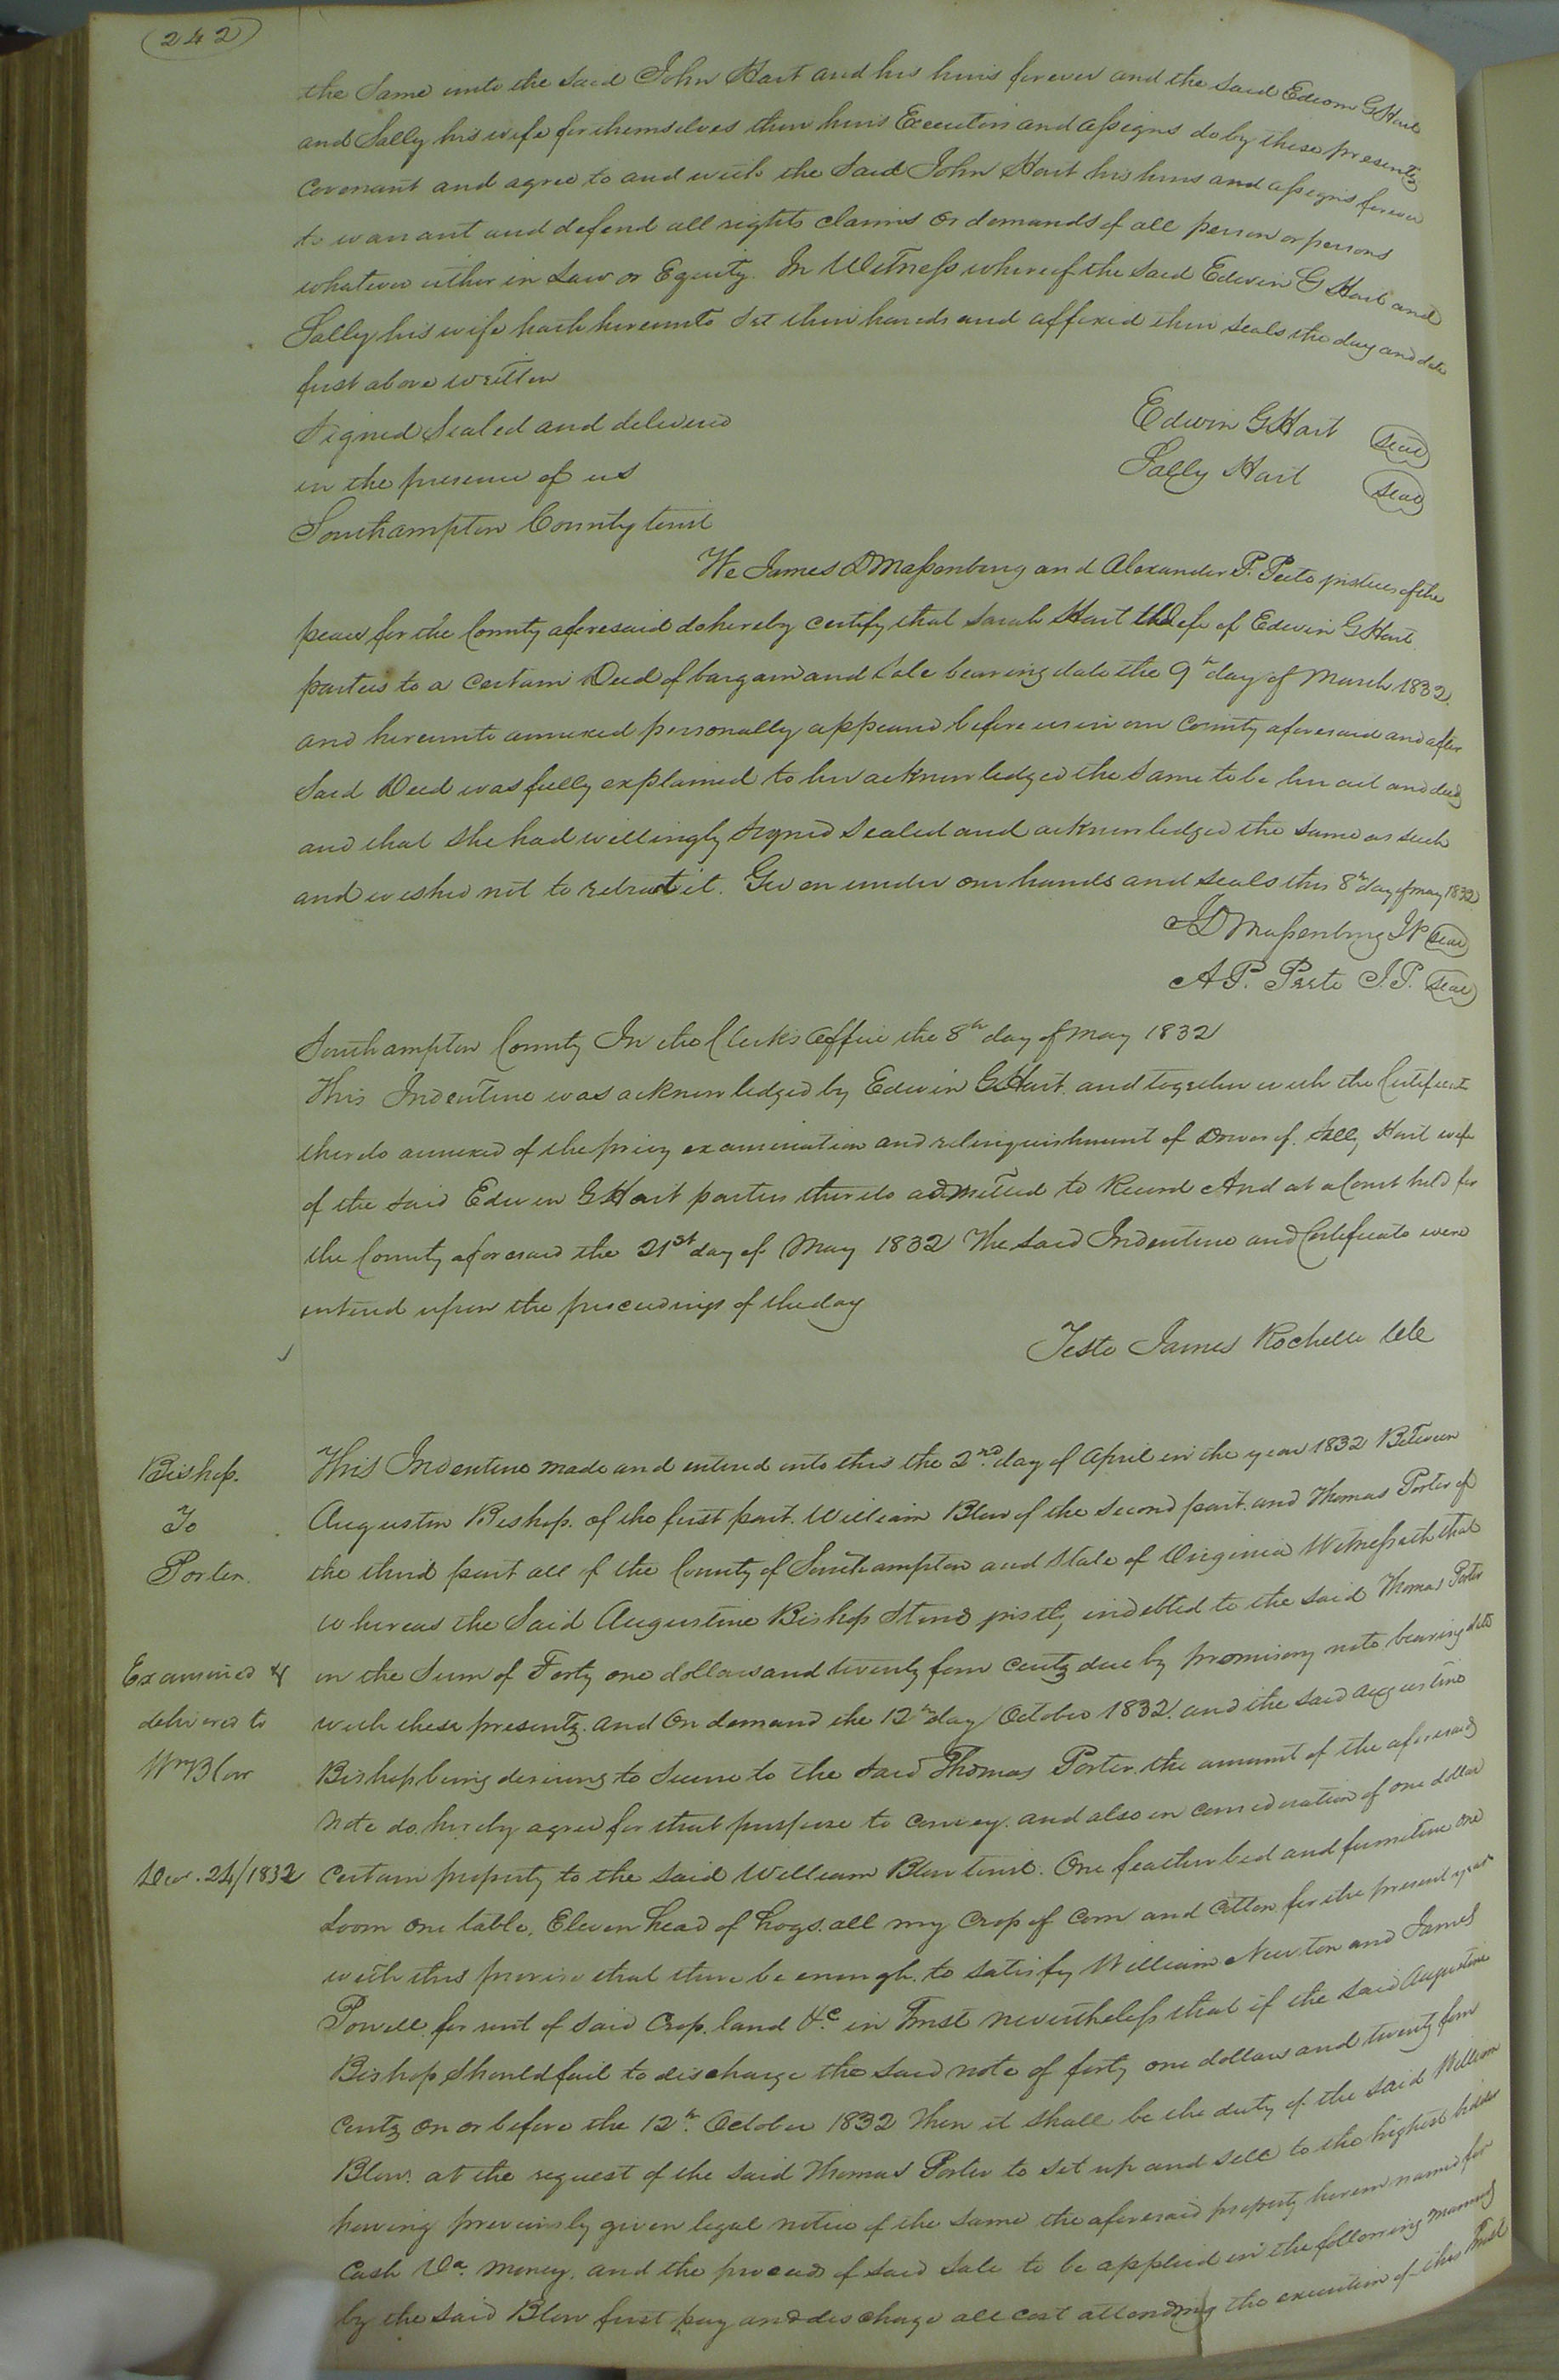 (242)
the Same unto the said John Hart and his heirs forever and the said Edwin G Hart
and Sally his wife for themselves their heirs Executors and assigns do by these presents
Covenant and agree to and with the said John Hart his heirs and assigns forever
to warrant and defend all rights claims or demands of all person or persons
whatever either in Law or Equity. In Witness whereof the said Edwin G Hart and
Sally his wife hath hereunto Set their hands and affixed their seals the day and date
first above written
Signed Sealed and delivered
in the presence of us
Edwin G Hart (seal)
Sally Hart (seal)
Southampton County towit
We James D Massenburg and Alexander P. Peete justices of the
peace for the County aforesaid do hereby certify that Sarah Hart the wife of Edwin G Hart
parties to a certain Deed of bargain and Sale bearing date the 9th day of March 1832.
and hereunto annexed personally appeared before us in our County aforesaid and after
Said Deed was fully explained to her acknowledged the same to be her act and deed
and that she had willingly signed sealed and acknowledged the same as such
and wished not to retract it. Given under our hands and seals this 8th day of may 1832
JD Massenburg JP (seal)
A P. Peete J.P. (seal)
Southampton County In the Clerks Office the 8th day of May 1832
This Indenture was acknowledged by Edwin G Hart and together with the Certificate
thereto annexed of the privy examination and relinquishment of dower of Sally Hart wife
of the said Edwin G Hart parties thereto admitted to Record And at a Court held for
the County aforesaid the 21st day of May 1832 The said Indenture and Certificate were
entered upon the proceedings of the day
Teste James Rochelle Clk
Bishop.
To
Porter.
Examined &
delivered to
Wm Blow
Decr. 24/1832
This Indenture made and entered into this the 2nd. day of April in the year 1832 Between
Augustin Bishop. of the first part. William Blow of the Second part. and Thomas Porter of
the third part all of the County of Southampton and State of Virginia Witnesseth that
whereas the Said Augustine Bishop Stand justly indebted to the said Thomas Porter
in the Sum of Forty one dollars and twenty four Cents due by promisory note bearing date
with these presents. and On demand the 12th day October 1832. and the said Augustine
Bishop being desirous to secure to the said Thomas Porter. the amount of the aforesaid
Note do hereby agree for that purpose to convey. and also in consideration of one dollar
certain property to the said William Blow towit. One feather bed and furniture one
Loom one table, Eleven head of hogs. all my crop of corn and cotton for the present year
with this proviso that there be enough. to satisfy William Newton and James
Powell for rent of said Crop. land &c in Trust nevertheless that if the said Augustine
Bishop Should fail to discharge the said note of forty one dollars and twenty four
Cents on or before the 12th. October 1832 Then it shall be the duty of the said William
Blow. at the request of the said Thomas Porter to set up and sell to the highest bidder
having previously given legal notice of the same the aforesaid property herein named for
Cash Va. money. and the proceeds of said Sale to be applied in the following manner
by the said Blow first pay and discharge all cost attending the execution of this Trust